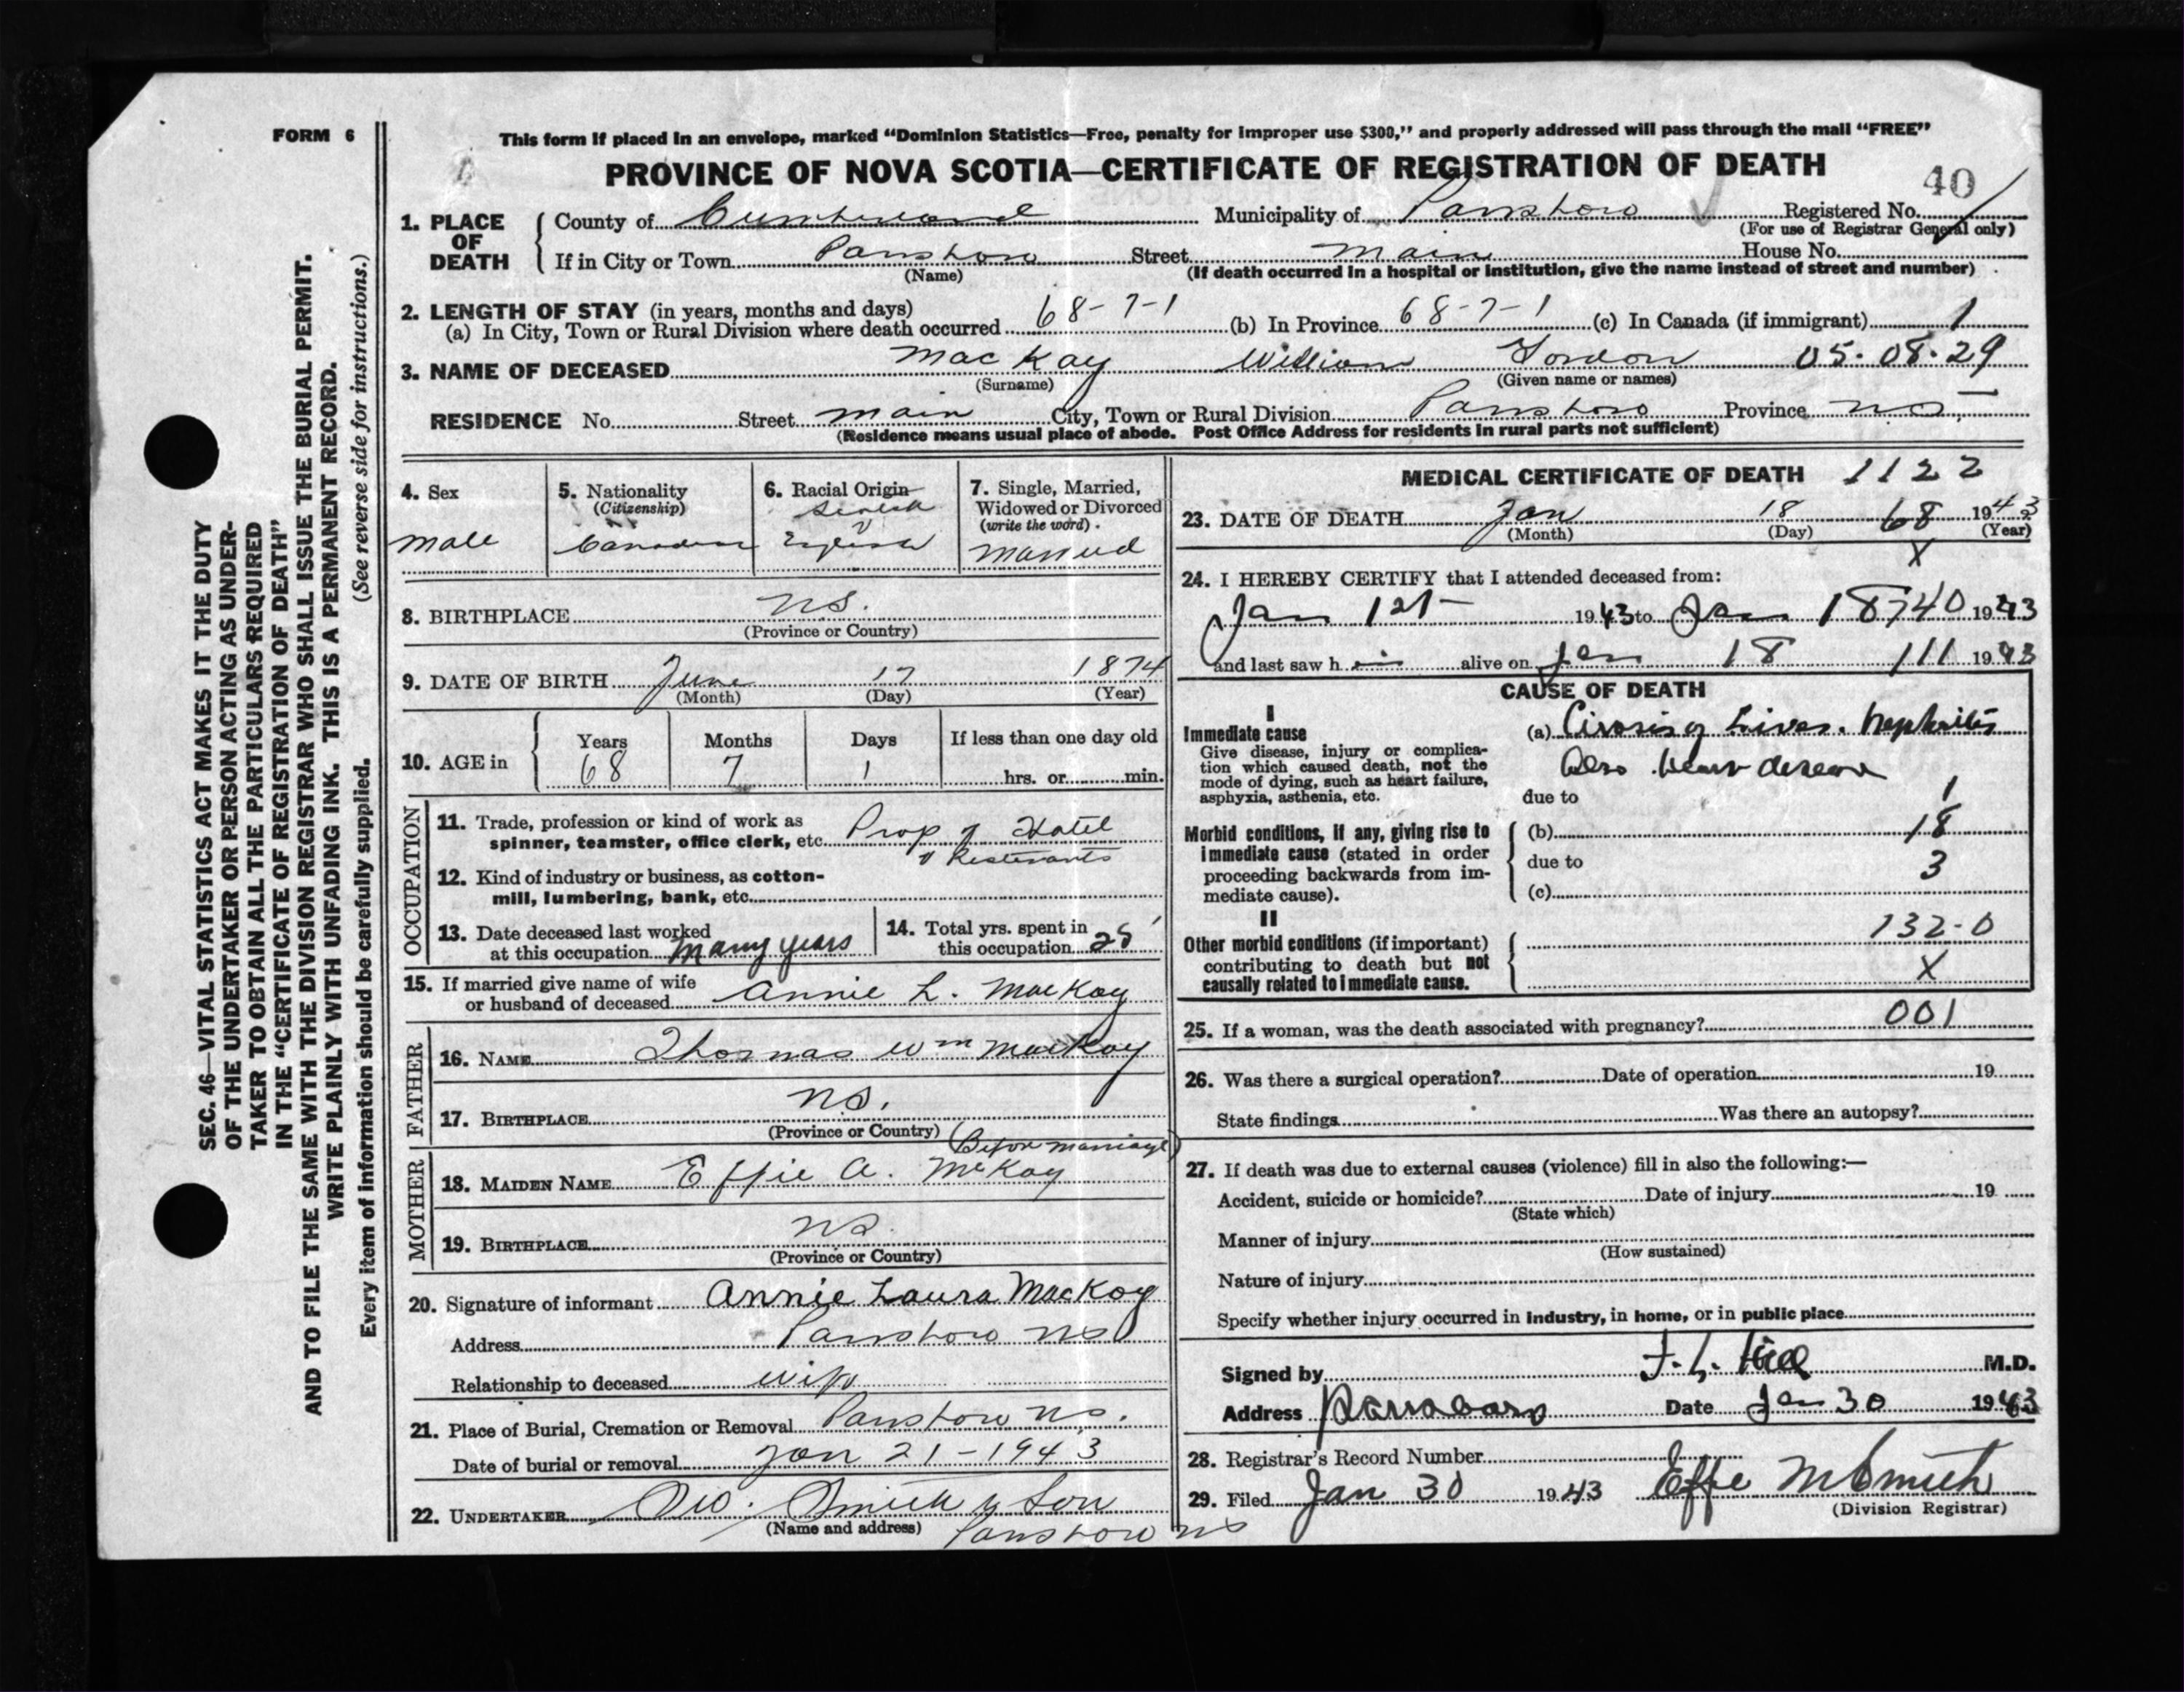 FORM 6
This form if placed in an envelope, marked "Dominion Statistics—Free, penalty for improper use $300," and properly addressed will pass through the mail "FREE"
PROVINCE OF NOVA SCOTIA—CERTIFICATE OF REGISTRATION OF DEATH
40
1. PLACE OF DEATH
County of Cumberland Municipality of Parrsboro Registered No.
(For use of Registrar General only)
If in City or Town Parrsboro Street Main House No.
(Name) (If death occurred in a hospital or institution, give the name instead of street and number)
2. LENGTH OF STAY (in years, months and days)
(a) In City, Town or Rural Division where death occurred 68-7-1 (b) In Province 68-7-1 (c) In Canada (if immigrant) 1
3. NAME OF DECEASED MacKay William Gordon 05.08.29
(Surname) (Given name or names)
RESIDENCE No. Street Main City, Town or Rural Division Parrsboro Province NS
(Residence means usual place of abode. Post Office Address for residents in rural parts not sufficient)
4. Sex
Male
5. Nationality
(Citizenship)
Canadian
6. Racial Origin
Scotch
English
7. Single, Married,
Widowed or Divorced
(write the word)
Married
8. BIRTHPLACE NS.
(Province or Country)
9. DATE OF BIRTH June 17 1874
(Month) (Day) (Year)
10. AGE in
Years Months Days If less than one day old
68 7 1 hrs. or min.
OCCUPATION
11. Trade, profession or kind of work as
spinner, teamster, office clerk, etc. Prop of Hotel
& Resterants
12. Kind of industry or business, as cotton-
mill, lumbering, bank, etc.
13. Date deceased last worked
at this occupation Many years
14. Total yrs. spent in
this occupation 25
15. If married give name of wife
or husband of deceased Annie L. MacKay
FATHER
16. NAME Thomas Wm MacKay
17. BIRTHPLACE NS.
(Province or Country)
MOTHER
(Before marriage)
18. MAIDEN NAME Effie A. McKay
19. BIRTHPLACE NS
(Province or Country)
20. Signature of informant Annie Laura MacKay
Address Parrsboro NS
Relationship to deceased wife
21. Place of Burial, Cremation or Removal Parrsboro NS.
Date of burial or removal Jan 21-1943
22. UNDERTAKER Smith & Son
(Name and address) Parrsboro NS
MEDICAL CERTIFICATE OF DEATH 1122
23. DATE OF DEATH Jan 18 68 1943
(Month) (Day) (Year)
X
24. I HEREBY CERTIFY that I attended deceased from:
Jan 1st 1943 to Jan 18 740 1943
and last saw him alive on Jan 18 111 1943
CAUSE OF DEATH
I
Immediate cause
Give disease, injury or complica-
tion which caused death, not the
mode of dying, such as heart failure,
asphyxia, asthenia, etc.
(a) Cirosis of Liver. Nephritis
Also Heart disease
due to 1
Morbid conditions, if any, giving rise to
immediate cause (stated in order
proceeding backwards from im-
mediate cause).
(b) 18
due to 3
(c)
II
Other morbid conditions (if important)
contributing to death but not
causally related to immediate cause.
132-0
X
25. If a woman, was the death associated with pregnancy? 001
26. Was there a surgical operation? Date of operation 19
State findings Was there an autopsy?
27. If death was due to external causes (violence) fill in also the following:—
Accident, suicide or homicide? Date of injury 19
(State which)
Manner of injury
(How sustained)
Nature of injury
Specify whether injury occurred in industry, in home, or in public place
Signed by F. L. Hill M.D.
Address Parrsboro Date Jan 30 1943
28. Registrar's Record Number
29. Filed Jan 30 1943 Effie M Smith
(Division Registrar)
SEC. 46—VITAL STATISTICS ACT MAKES IT THE DUTY
OF THE UNDERTAKER OR PERSON ACTING AS UNDER-
TAKER TO OBTAIN ALL THE PARTICULARS REQUIRED
IN THE "CERTIFICATE OF REGISTRATION OF DEATH"
AND TO FILE THE SAME WITH THE DIVISION REGISTRAR WHO SHALL ISSUE THE BURIAL PERMIT.
WRITE PLAINLY WITH UNFADING INK. THIS IS A PERMANENT RECORD.
Every item of information should be carefully supplied. (See reverse side for instructions.)